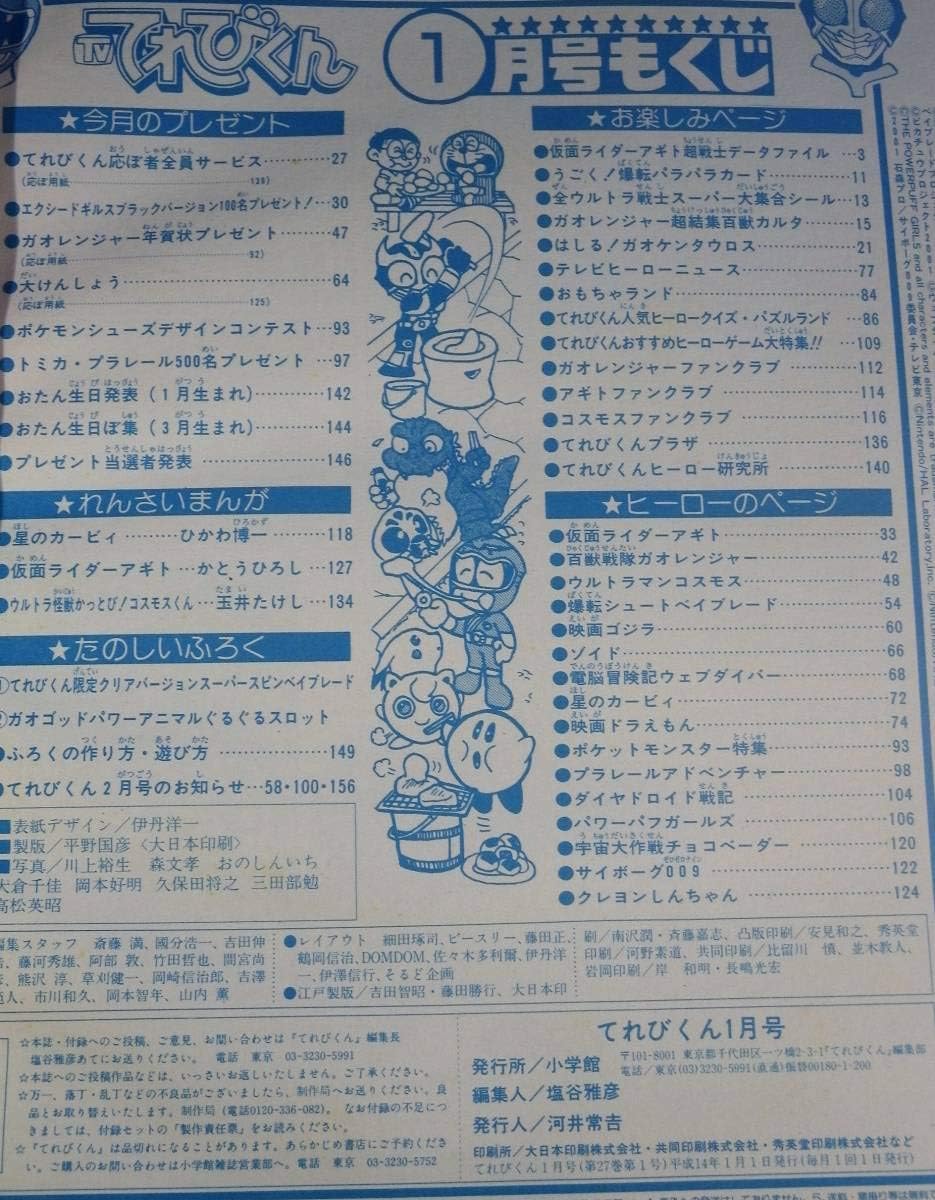 TVてれびくん ①月号もくじ
★今月のプレゼント
●てれびくん応ぼ者全員サービス…………27
(応ぼ用紙…………139)
●エクシードギルスブラックバージョン100名プレゼント!…30
●ガオレンジャー年賀状プレゼント…………47
(応ぼ用紙…………92)
●大けんしょう…………64
(応ぼ用紙…………125)
●ポケモンシューズデザインコンテスト…93
●トミカ・プラレール500名プレゼント…97
●おたん生日発表(1月生まれ)…………142
●おたん生日ぼ集(3月生まれ)…………144
●プレゼント当選者発表…………146
★れんさいまんが
●星のカービィ………ひかわ博一…………118
●仮面ライダーアギト…かとうひろし…127
●ウルトラ怪獣かっとび!コスモスくん…玉井たけし…134
★たのしいふろく
①てれびくん限定クリアバージョンスーパースピンベイブレード
②ガオゴッドパワーアニマルぐるぐるスロット
●ふろくの作り方・遊び方…………149
●てれびくん2月号のお知らせ…58・100・156
■表紙デザイン/伊丹洋一
■製版/平野国彦〈大日本印刷〉
■写真/川上裕生 森文孝 おのしんいち
大倉千佳 岡本好明 久保田将之 三田部勉
高松英昭
★お楽しみページ
●仮面ライダーアギト超戦士データファイル…3
●うごく!爆転パラパラカード…………11
●全ウルトラ戦士スーパー大集合シール…13
●ガオレンジャー超結集百獣カルタ…………15
●はしる!ガオケンタウロス…………21
●テレビヒーローニュース…………77
●おもちゃランド…………84
●てれびくん人気ヒーロークイズ・パズルランド…86
●てれびくんおすすめヒーローゲーム大特集!!…109
●ガオレンジャーファンクラブ…………112
●アギトファンクラブ…………114
●コスモスファンクラブ…………116
●てれびくんプラザ…………136
●てれびくんヒーロー研究所…………140
★ヒーローのページ
●仮面ライダーアギト…………33
●百獣戦隊ガオレンジャー…………42
●ウルトラマンコスモス…………48
●爆転シュートベイブレード…………54
●映画ゴジラ…………60
●ゾイド…………66
●電脳冒険記ウェブダイバー…………68
●星のカービィ…………72
●映画ドラえもん…………74
●ポケットモンスター特集…………93
●プラレールアドベンチャー…………98
●ダイヤドロイド戦記…………104
●パワーパフガールズ…………106
●宇宙大作戦チョコベーダー…………120
●サイボーグ009…………122
●クレヨンしんちゃん…………124
編集スタッフ 斎藤 満、國分浩一、吉田伸
、藤河秀雄、阿部 敦、竹田哲也、間宮尚
、熊沢 淳、草刈健一、岡崎信治郎、吉澤
人、市川和久、岡本智年、山内 薫
●レイアウト 細田琢司、ピースリー、藤田正、
鶴岡信治、DOMDOM、佐々木多利爾、伊丹洋
一、伊澤信行、そるど企画
●江戸製版/吉田智昭・藤田勝行、大日本印
刷/南沢潤・斉藤嘉志、凸版印刷/安見和之、秀英堂
印刷/河野素道、共同印刷/比留川 慎、並木教人、
岩岡印刷/岸 和明・長嶋光宏
☆本誌・付録へのご投稿、ご意見、お問い合わせは『てれびくん』編集長
塩谷雅彦あてにお送りください。 電話 東京 03-3230-5991
☆本誌へのご投稿作品などは、いっさいお返しいたしません。ご了承ください。
☆万一、落丁・乱丁などの不良品がございましたら、制作局へお送りください。良
品とお取り替えいたします。制作局(電話0120-336-082)。なお付録の不足につ
きましては、付録セットの「製作責任票」をお読みください。
☆『てれびくん』は品切れになることがあります。あらかじめ書店にご予約くださ
い。ご購入のお問い合わせは小学館雑誌営業部へ。電話 東京 03-3230-5752
てれびくん1月号
発行所/小学館 〒101-8001 東京都千代田区一ツ橋2-3-1『てれびくん』編集部
電話/東京(03)3230-5991(直通)振替00180-1-200
編集人/塩谷雅彦
発行人/河井常吉
印刷所/大日本印刷株式会社・共同印刷株式会社・秀英堂印刷株式会社など
てれびくん1月号(第27巻第1号)平成14年1月1日発行(毎月1回1日発行)